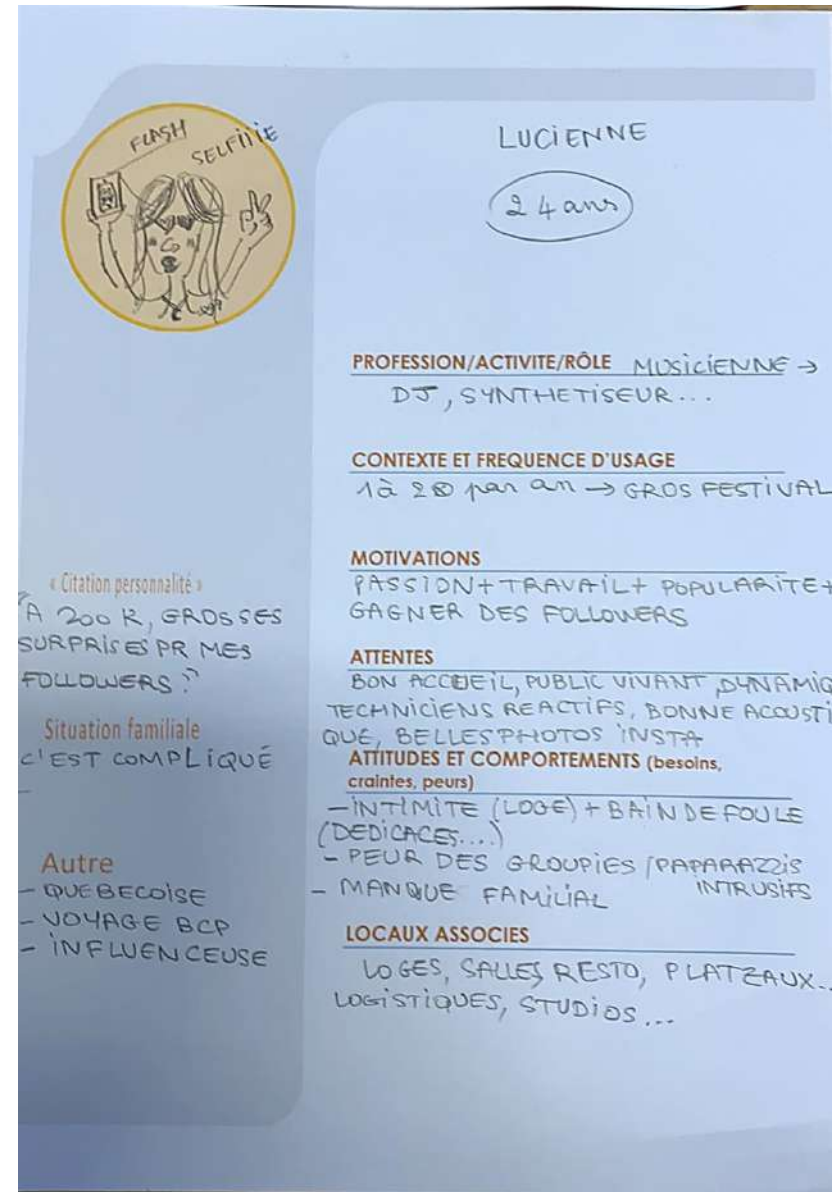 FLASH
SELFIIIE
LUCIENNE
24 ans
PROFESSION/ACTIVITE/RÔLE MUSICIENNE →
DJ, SYNTHETISEUR...
CONTEXTE ET FREQUENCE D'USAGE
1 à 2 par an → GROS FESTIVAL
MOTIVATIONS
PASSION + TRAVAIL + POPULARITE +
GAGNER DES FOLLOWERS
ATTENTES
BON ACCUEIL, PUBLIC VIVANT, DYNAMIQ
TECHNICIENS REACTIFS, BONNE ACOUSTI
QUE, BELLES PHOTOS INSTA
ATTITUDES ET COMPORTEMENTS (besoins,
craintes, peurs)
- INTIMITE (LOGE) + BAIN DE FOULE
(DEDICACES...)
- PEUR DES GROUPIES / PAPARAZZIS
INTRUSIFS
- MANQUE FAMILIAL
LOCAUX ASSOCIES
LOGES, SALLES RESTO, PLATEAUX...
LOGISTIQUES, STUDIOS...
« Citation personnalité »
"A 200 K, GROSSES
SURPRISES PR MES
FOLLOWERS !"
Situation familiale
C'EST COMPLIQUÉ
-
Autre
- QUEBECOISE
- VOYAGE BCP
- INFLUENCEUSE